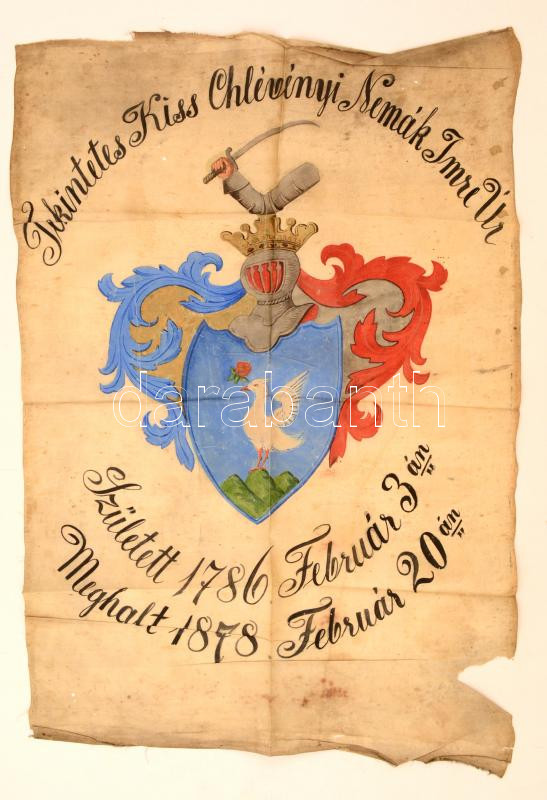 Tekintetes Kiss Chlévényi Nemák Imre Úr
darabanth
Született 1786 Február 3 án
Meghalt 1878 Február 20 án